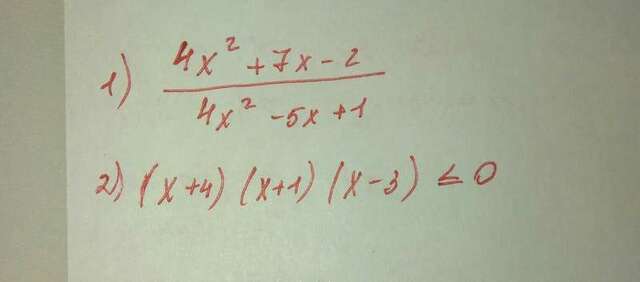 1) (4x² + 7x - 2) / (4x² - 5x + 1)
2) (x+4) (x+1) (x-3) ≤ 0